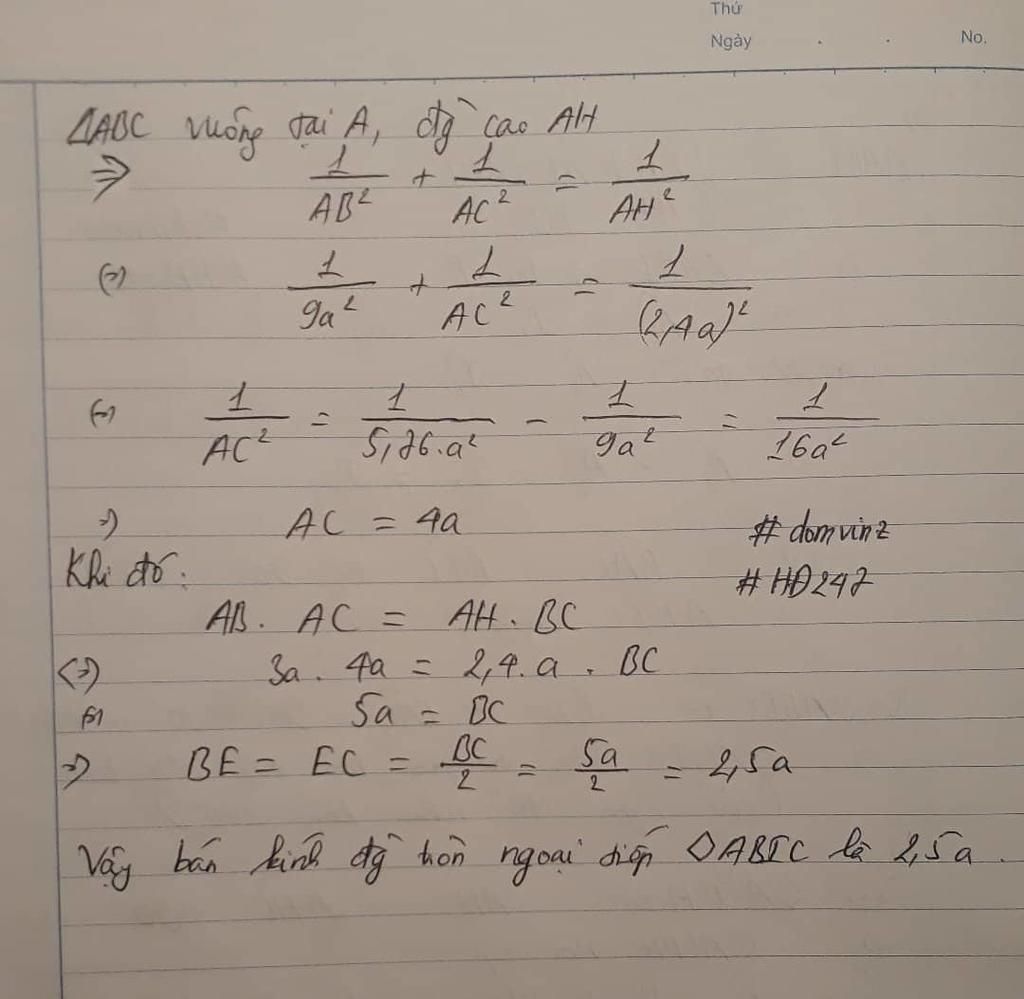 Thứ
Ngày . . No.
ΔABC vuông tại A, đg̀ cao AH
=> 1/AB² + 1/AC² = 1/AH²
(=) 1/9a² + 1/AC² = 1/(2,4a)²
(=) 1/AC² = 1/5,76.a² - 1/9a² = 1/16a²
=) AC = 4a
# domvinz
Khi đó:
# HĐ247
AB. AC = AH . BC
<=) 3a . 4a = 2,4.a . BC
(=) 5a = BC
=) BE = EC = BC/2 = 5a/2 = 2,5a
Vậy bán kính đg̀ tròn ngoại tiếp ◇ABIC là 2,5a.